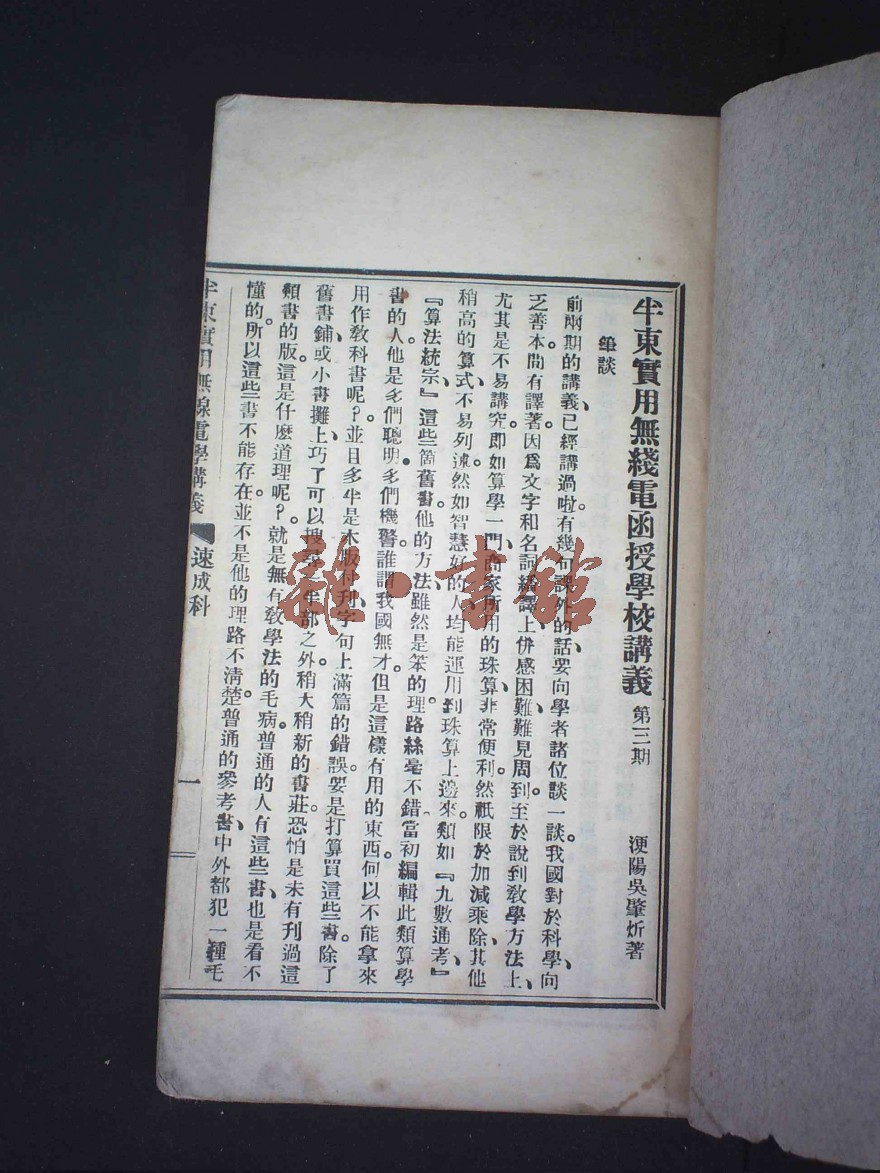 半東實用無綫電函授學校講義 第三期 浭陽吳肇炘著
筆談
前兩期的講義、已經講過啦。有幾句課外的話、要向學者諸位談一談。我國對於科學、向
乏善本。間有譯著、因爲文字和名詞繙譯上、倂感困難、難見周到。至於說到敎學方法上、
尤其是不易講究。即如算學一門、商家所用的珠算、非常便利。然祇限於加減乘除、其他
稍高的算式、不易列述。然如智慧好的人、均能運用到珠算上邊來。類如『九數通考』
『算法統宗』這些箇舊書、他的方法、雖然是笨的、理路絲毫不錯。當初編輯此類算學
書的人、他是多們聰明、多們機警。誰謂我國無才。但是這樣有用的東西、何以不能拿來
用作敎科書呢？並且多半是木版付刊、字句上滿篇的錯誤。要是打算買這些書、除了
舊書鋪或小書攤上、巧了可以搜尋一半部之外、稍大稍新的書莊、恐怕是未有刊過這
類書的版。這是什麽道理呢？就是無有敎學法的毛病。普通的人、有這些書、也是看不
懂的。所以這些書不能存在、並不是他的理路不清楚。普通的參考書、中外都犯一種毛
半東實用無線電學講義 速成科 一
雜·書館